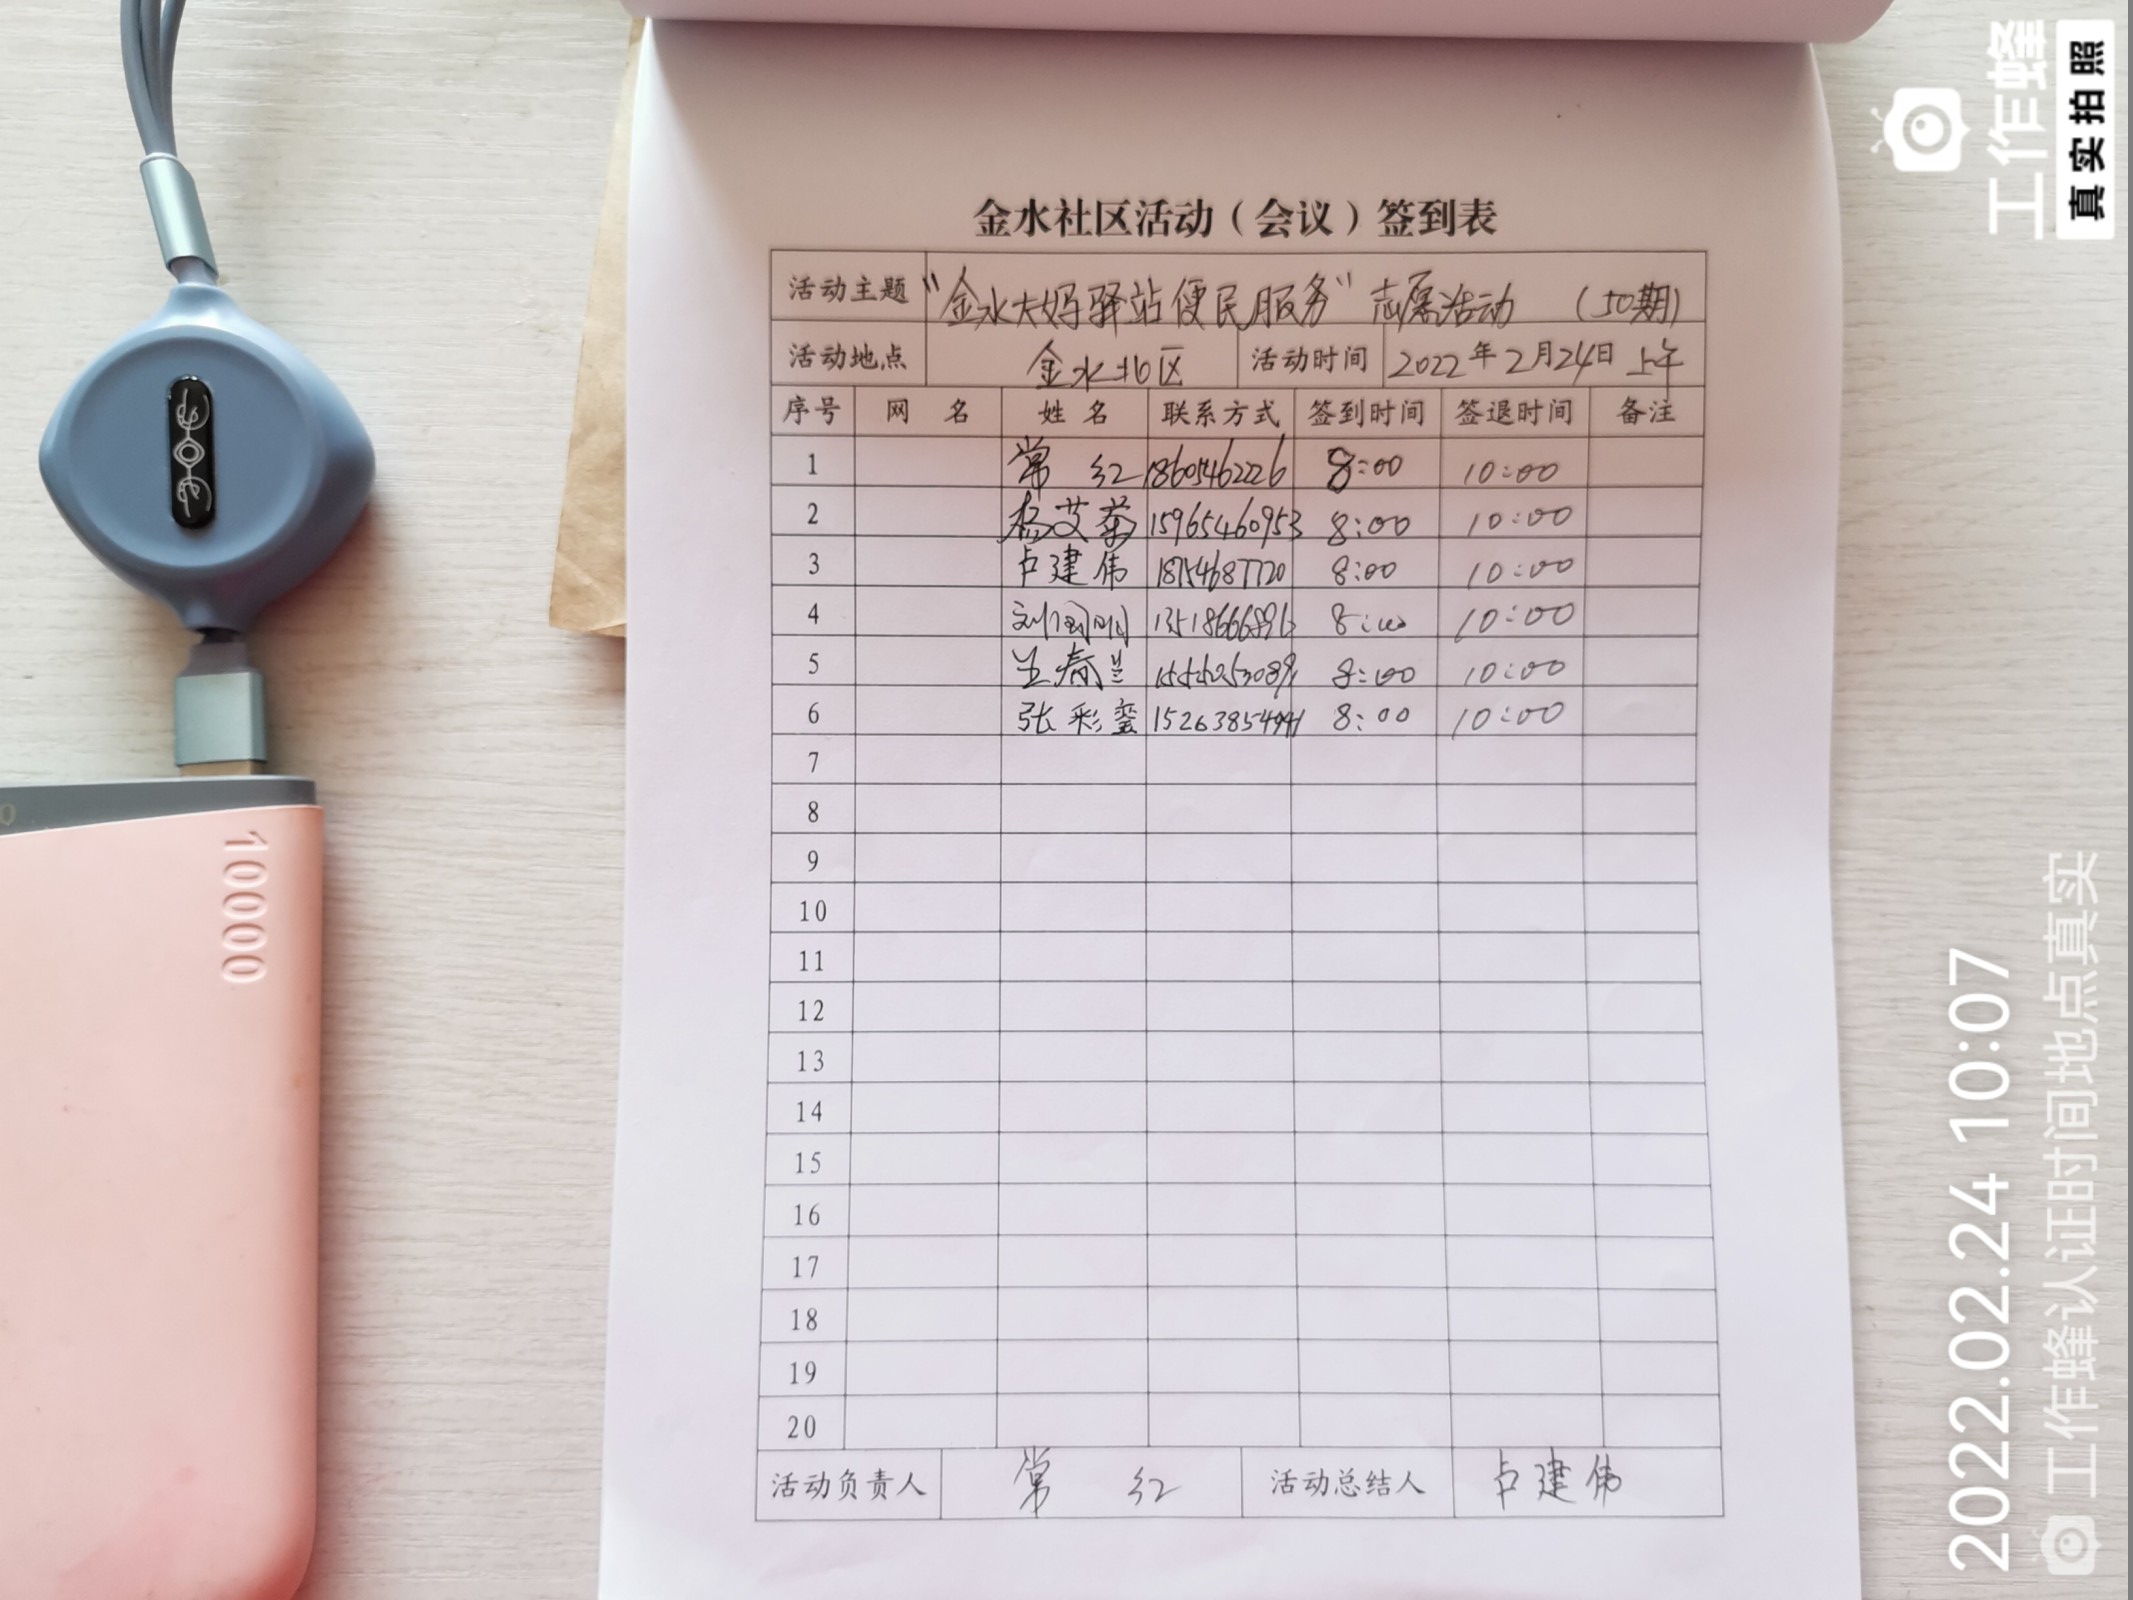 金水社区活动（会议）签到表
活动主题 “金水大妈驿站便民服务”志愿活动 （50期）
活动地点 金水北区 活动时间 2022年2月24日上午
序号 网 名 姓 名 联系方式 签到时间 签退时间 备注
1 常 红 18605462226 8:00 10:00
2 杨艾菊 15965460953 8:00 10:00
3 卢建伟 18754687720 8:00 10:00
4 刘国明 8:00 10:00
5 王春兰 8:00 10:00
6 张彩銮 8:00 10:00
7
8
9
10
11
12
13
14
15
16
17
18
19
20
活动负责人 常 红 活动总结人 卢建伟
10000
工作蜂
真实拍照
2022.02.24 10:07
工作蜂认证时间地点真实